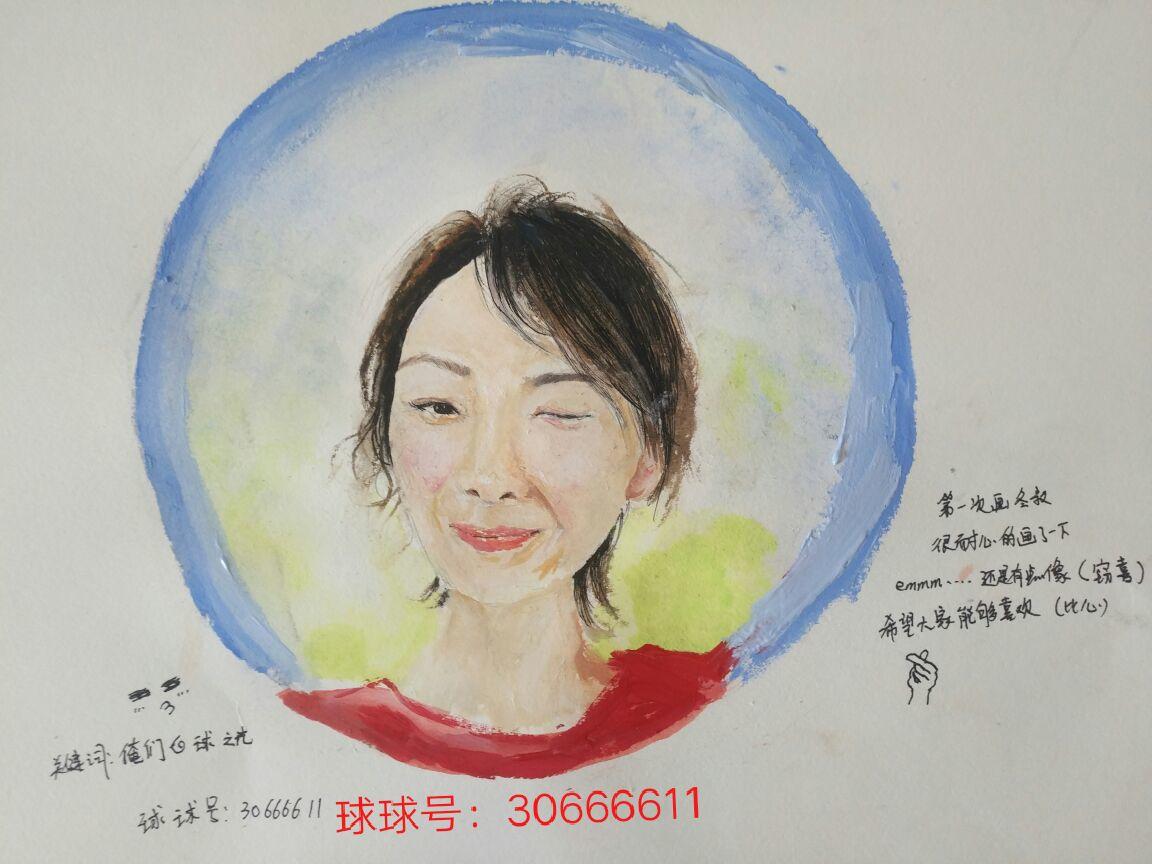 第一次画冬叔
很耐心的画了一下
emmm.... 还是有点像(窃喜)
希望大家能够喜欢(比心)
关键词:俺们の球之光
球球号:30666611
球球号：30666611